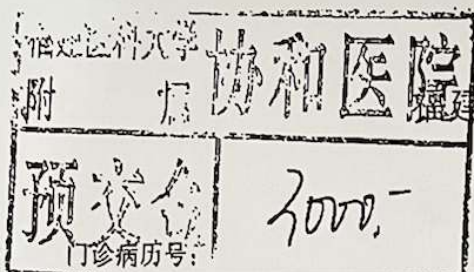 福建医科大学
附属 协和医院
福建
预交金 3000.-
门诊病历号：